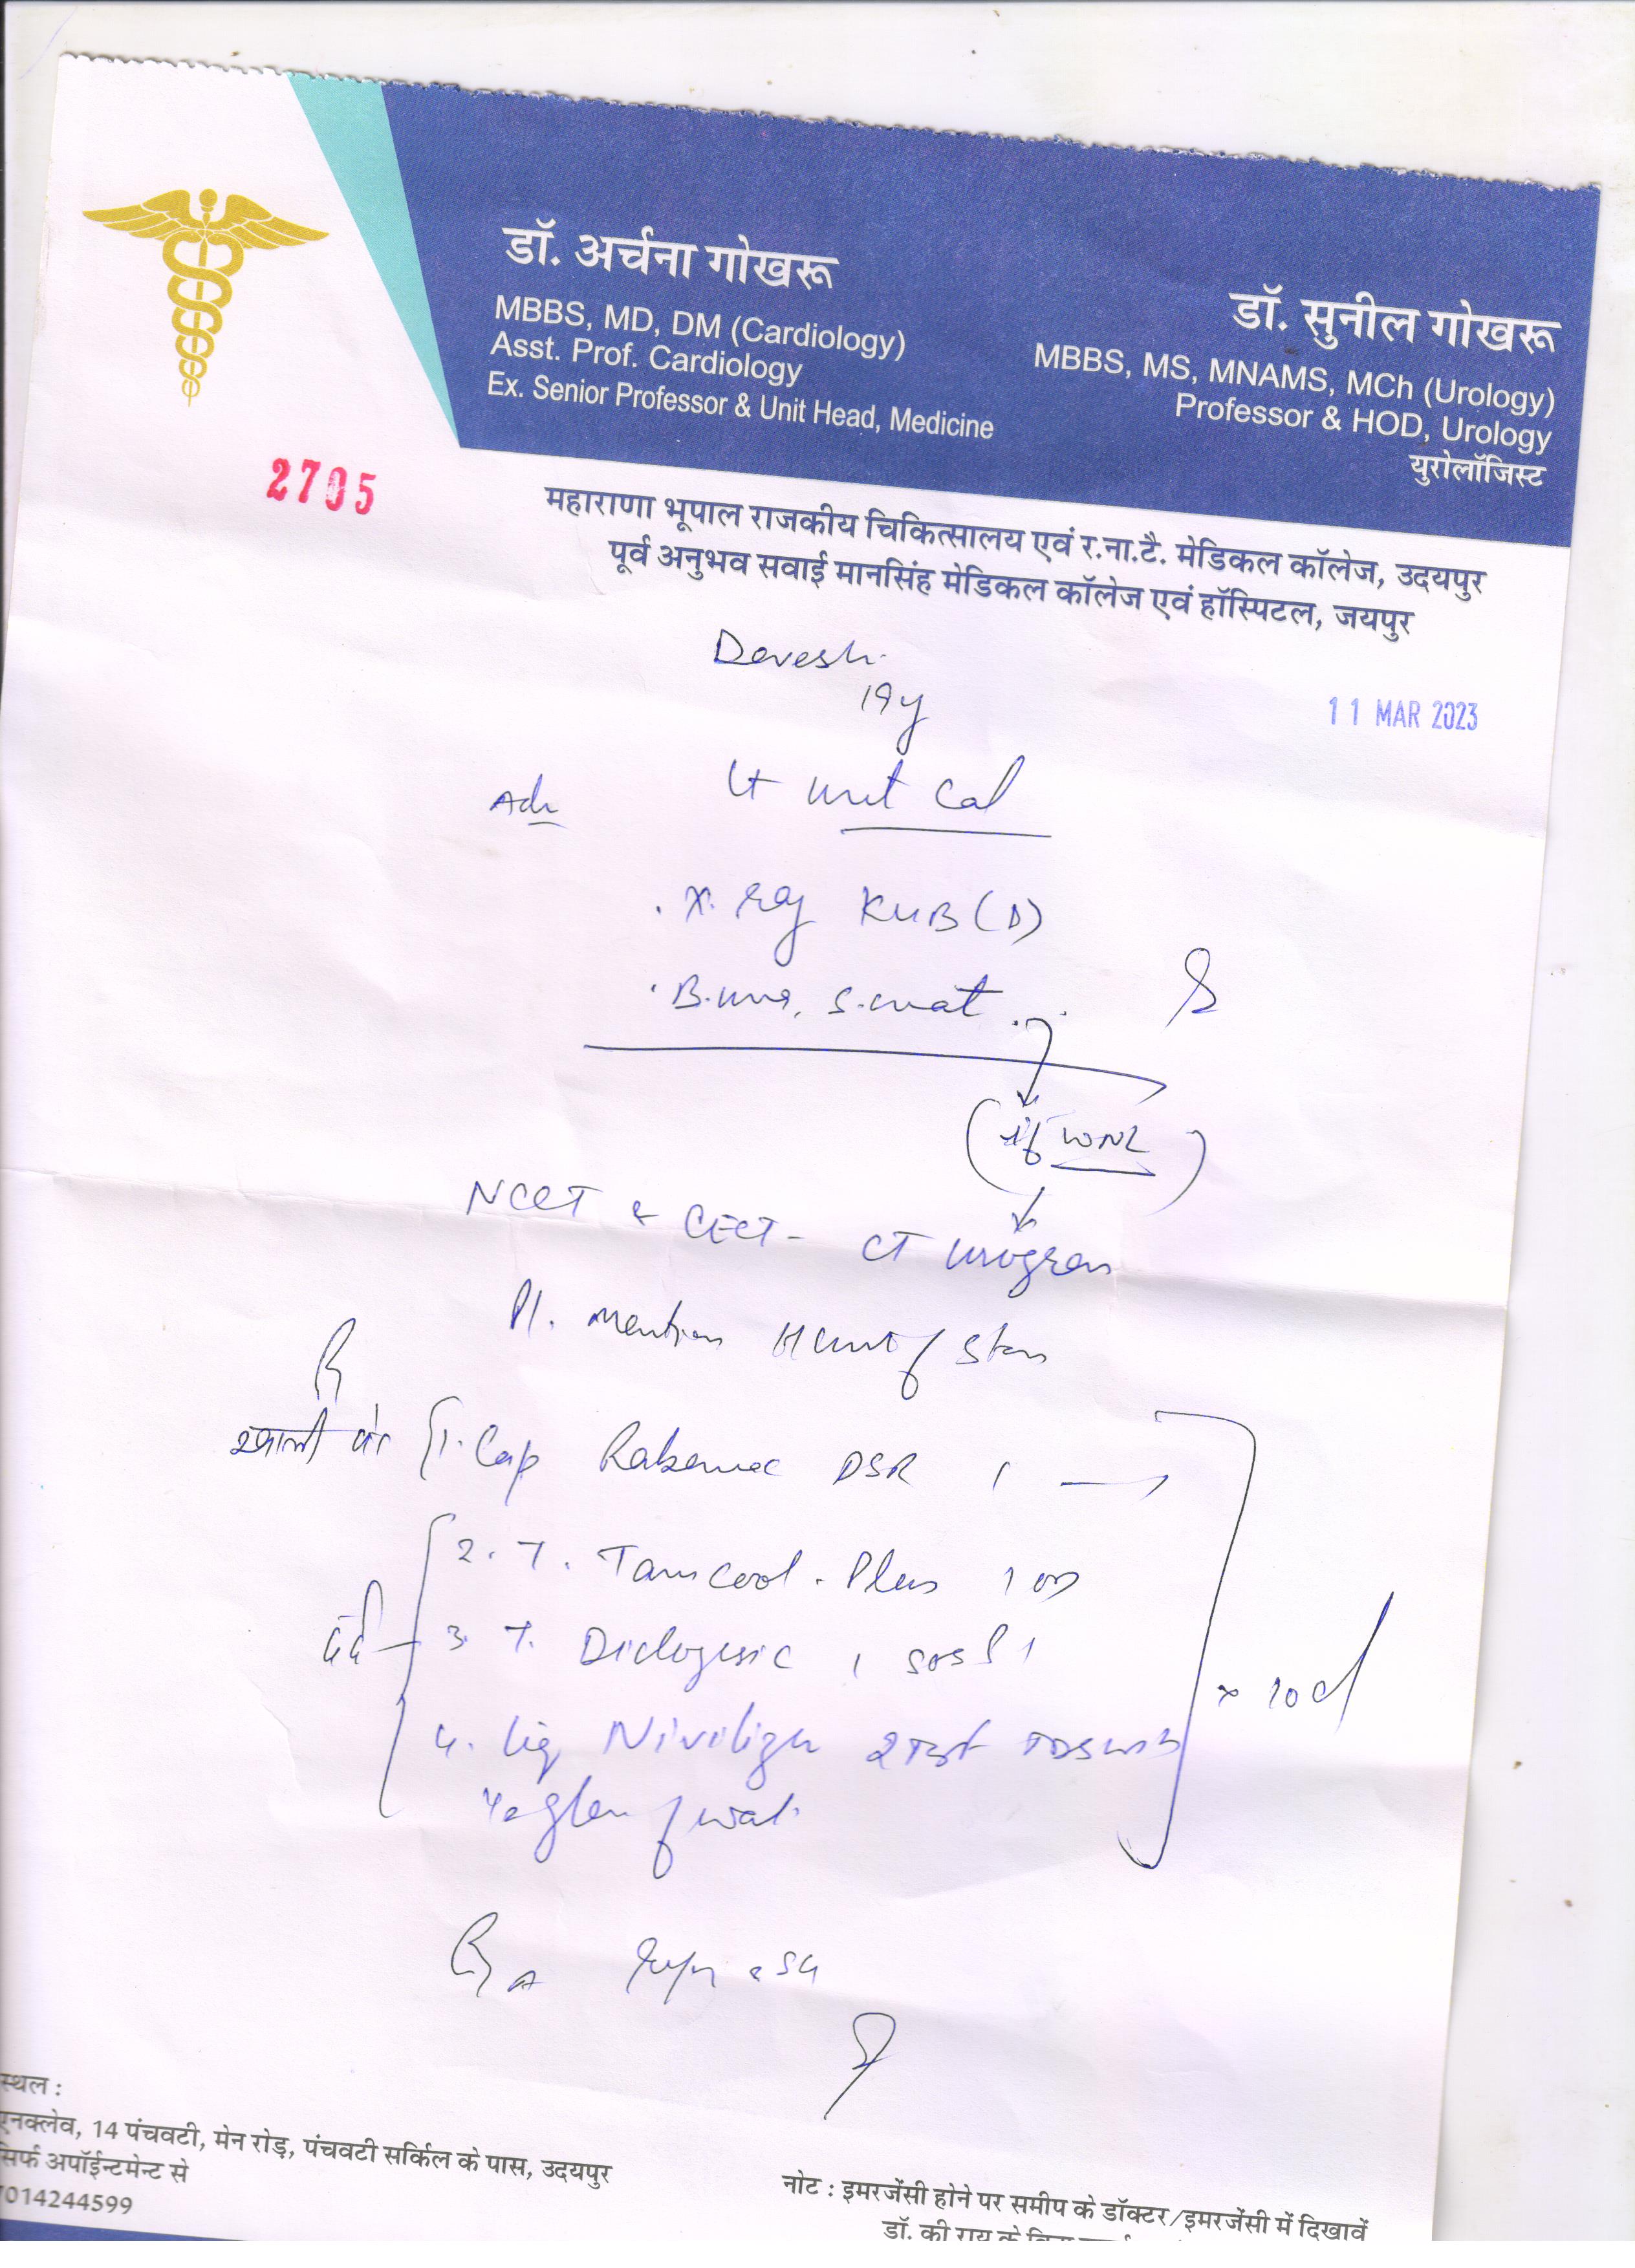 डॉ. अर्चना गोखरू
MBBS, MD, DM (Cardiology)
Asst. Prof. Cardiology
Ex. Senior Professor & Unit Head, Medicine
डॉ. सुनील गोखरू
MBBS, MS, MNAMS, MCh (Urology)
Professor & HOD, Urology
युरोलॉजिस्ट
2705
महाराणा भूपाल राजकीय चिकित्सालय एवं र.ना.टै. मेडिकल कॉलेज, उदयपुर
पूर्व अनुभव सवाई मानसिंह मेडिकल कॉलेज एवं हॉस्पिटल, जयपुर
Devesh
19y
11 MAR 2023
Adv
Lt Cal
. X. Ray KUB (D)
. B. urea, S. creat
(if WNL)
NCCT & CECT - CT Urogram
Pl. mention of Stone
खाली पेट 1. Cap DSR 1
2. T. Tamcool - Plus 1 OD
दर्द 3. T. Diclogesic 1 SOS
4. Liq TDS with
glass of water
x 10 d
स्थल :
एनक्लेव, 14 पंचवटी, मेन रोड़, पंचवटी सर्किल के पास, उदयपुर
सिर्फ अपॉईन्टमेन्ट से
7014244599
नोट : इमरजेंसी होने पर समीप के डॉक्टर/इमरजेंसी में दिखावें
डॉ. की राय के बिना